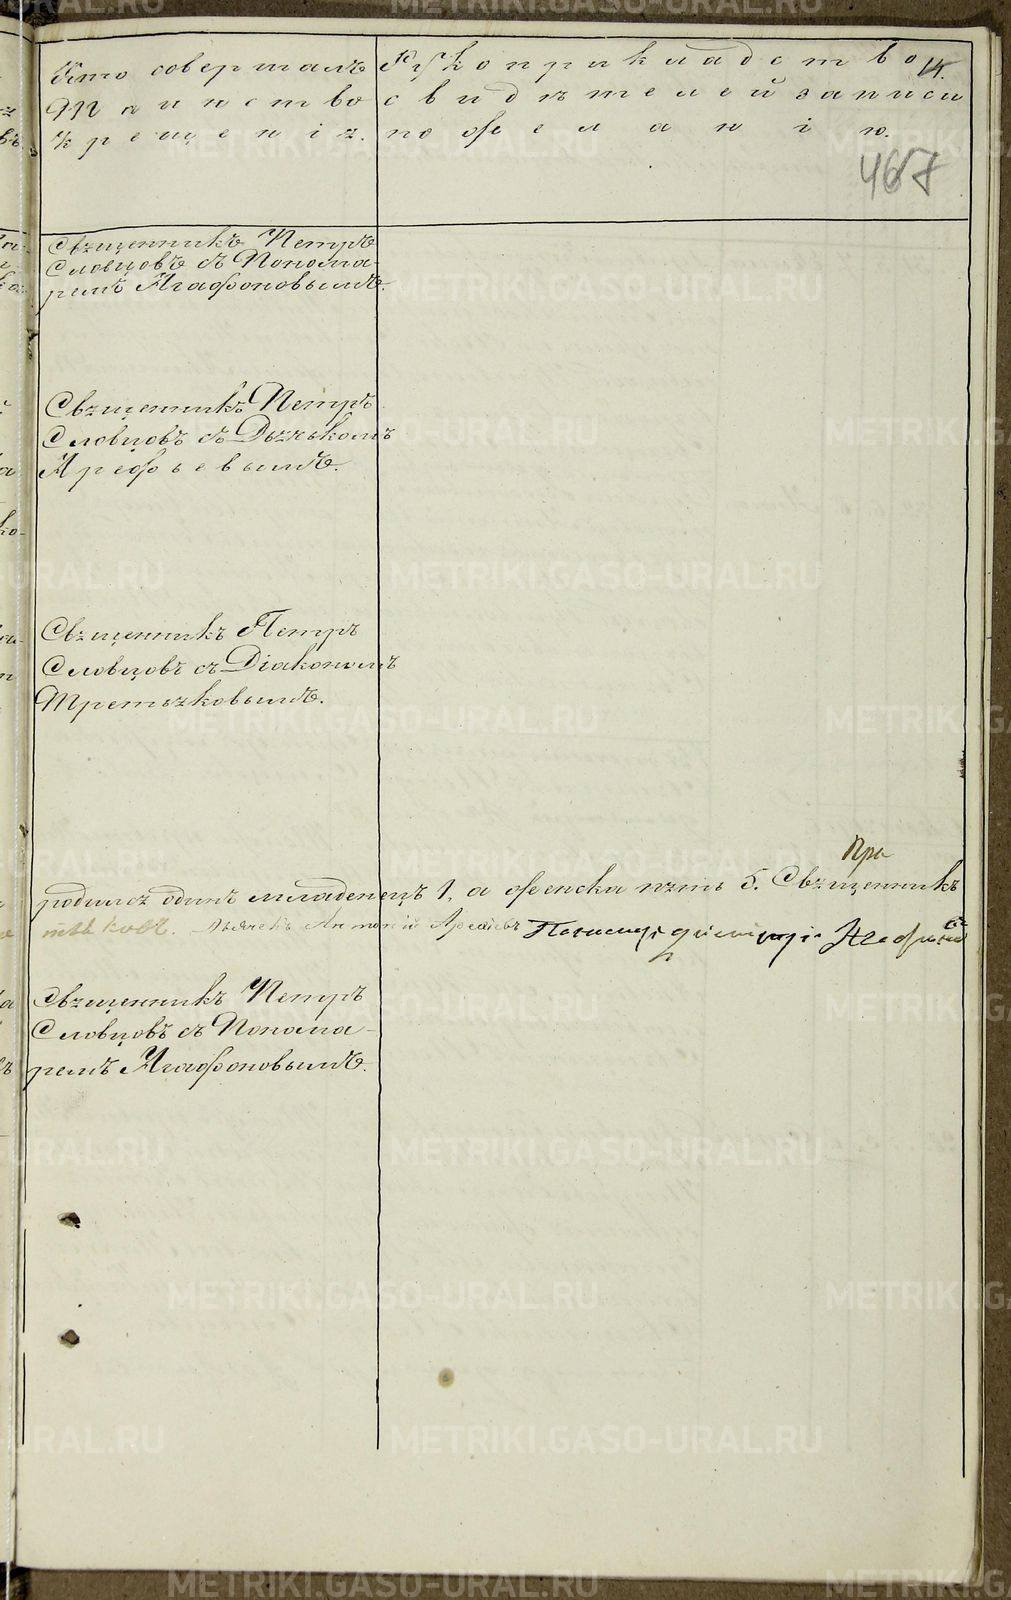 Кто совершалъ
Таинство
крещенія.
Рукоприкладство
свидѣтелей записи
по желанію.
14.
467
Священникъ Петръ
Словцовъ съ Понома-
ремъ Агафоновымъ.
Священникъ Петръ
Словцовъ съ Дьячкомъ
Арефьевымъ.
Священникъ Петръ
Словцовъ съ Діакономъ
Третьяковымъ.
родился одинъ младенецъ 1, а женска пять 5. Священникъ
Дьячекъ Антоній Арефьевъ
Священникъ Петръ
Словцовъ съ Понома-
ремъ Агафоновымъ.
METRIKI.GASO-URAL.RU